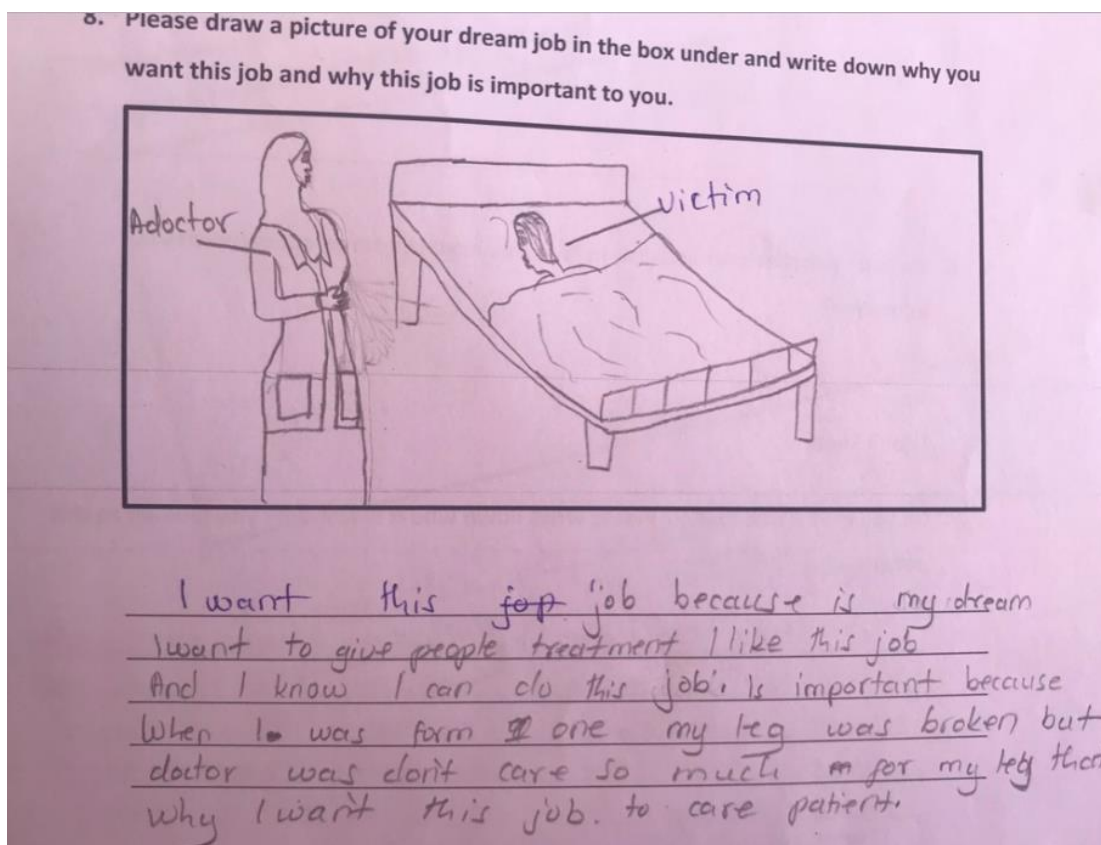 8. Please draw a picture of your dream job in the box under and write down why you
want this job and why this job is important to you.
Adoctor
victim
I want this jop job because is my dream
I want to give people treatment I like this job
And I know I can do this job. Is important because
When I was form one my leg was broken but
doctor was don't care so much for my leg
why I want this job. to care patient.